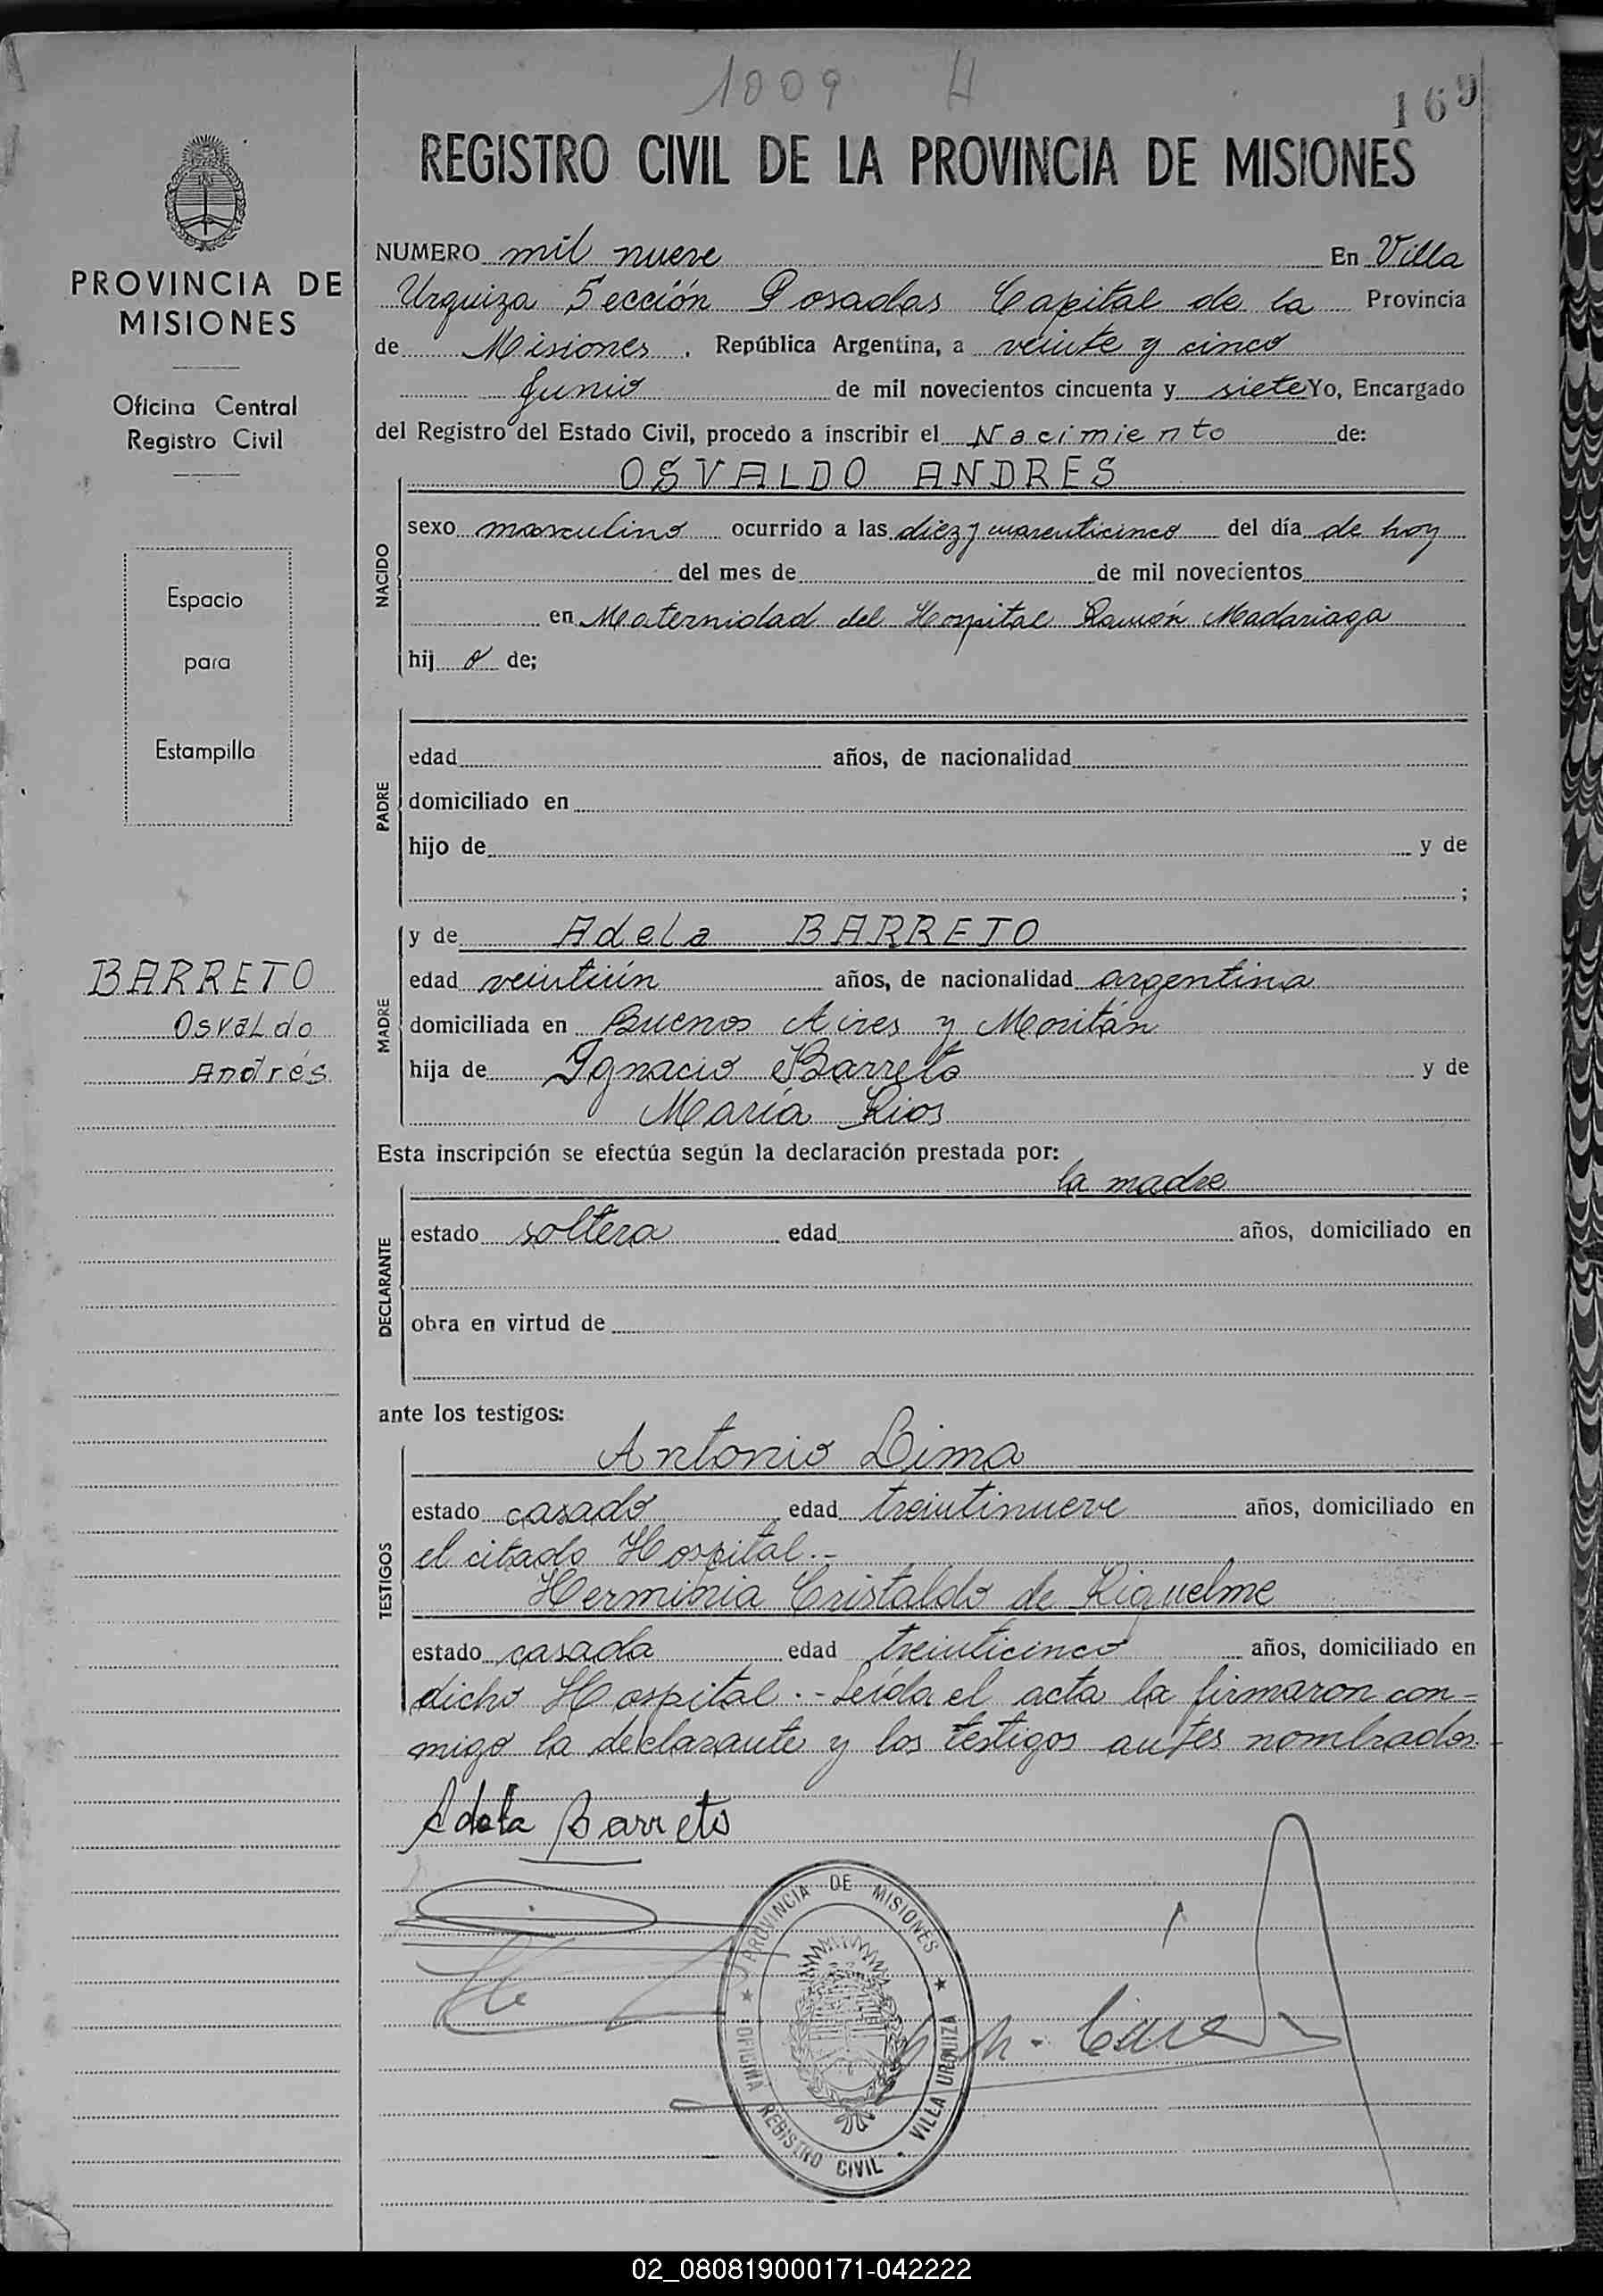 1009 H
169
REGISTRO CIVIL DE LA PROVINCIA DE MISIONES
PROVINCIA DE
MISIONES
Oficina Central
Registro Civil
Espacio
para
Estampilla
BARRETO
Osvaldo
Andrés
NUMERO mil nueve En Villa
Urquiza Sección Posadas Capital de la Provincia
de Misiones, República Argentina, a veinte y cinco
Junio de mil novecientos cincuenta y siete Yo, Encargado
del Registro del Estado Civil, procedo a inscribir el Nacimiento de:
NACIDO
OSVALDO ANDRES
sexo masculino ocurrido a las diez y cuarenticinco del día de hoy
del mes de de mil novecientos
en Maternidad del Hospital Ramón Madariaga
hij o de;
PADRE
edad años, de nacionalidad
domiciliado en
hijo de y de
;
MADRE
y de Adela BARRETO
edad veintiún años, de nacionalidad argentina
domiciliada en Buenos Aires y Moritán
hija de Ignacio Barreto y de
María Rios
Esta inscripción se efectúa según la declaración prestada por:
DECLARANTE
la madre
estado soltera edad años, domiciliado en
obra en virtud de
ante los testigos:
TESTIGOS
Antonio Lima
estado casado edad treintinueve años, domiciliado en
el citado Hospital.-
Herminia Cristaldo de Riquelme
estado casada edad treinticinco años, domiciliado en
dicho Hospital.- Leída el acta la firmaron con-
migo la declarante y los testigos antes nombrados.
Adela Barreto
PROVINCIA DE MISIONES
OFICINA REGISTRO CIVIL · VILLA URQUIZA
02_080819000171-042222